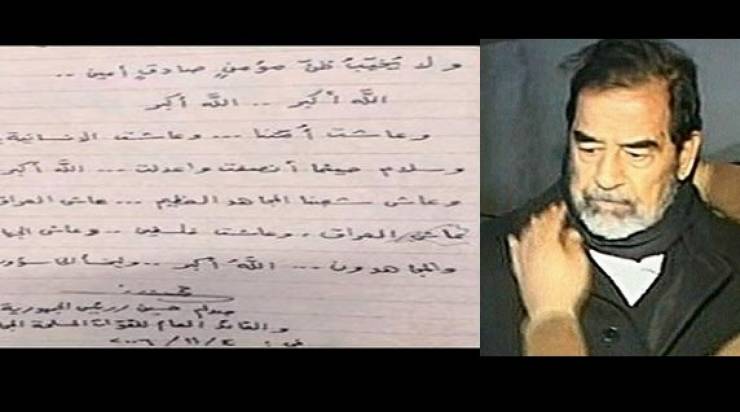 ولا يُخيّبُ ظنّ مؤمنٍ صادقٍ أمين ..
الله أكبر .. الله أكبر
وعاشت أُمّتنا ... وعاشت الانسانية
وسلام حيثما أنصفت واعدلت ... الله أكبر
وعاش شعبنا المجاهد العظيم ... عاش العراق
عاش العراق ، وعاشت فلسطين .. وعاش
والمجاهدون ... الله أكبر ..
صدام حسين رئيس الجمهورية
والقائد العام للقوات المسلحة
في : ٢٠٠٦/١١/